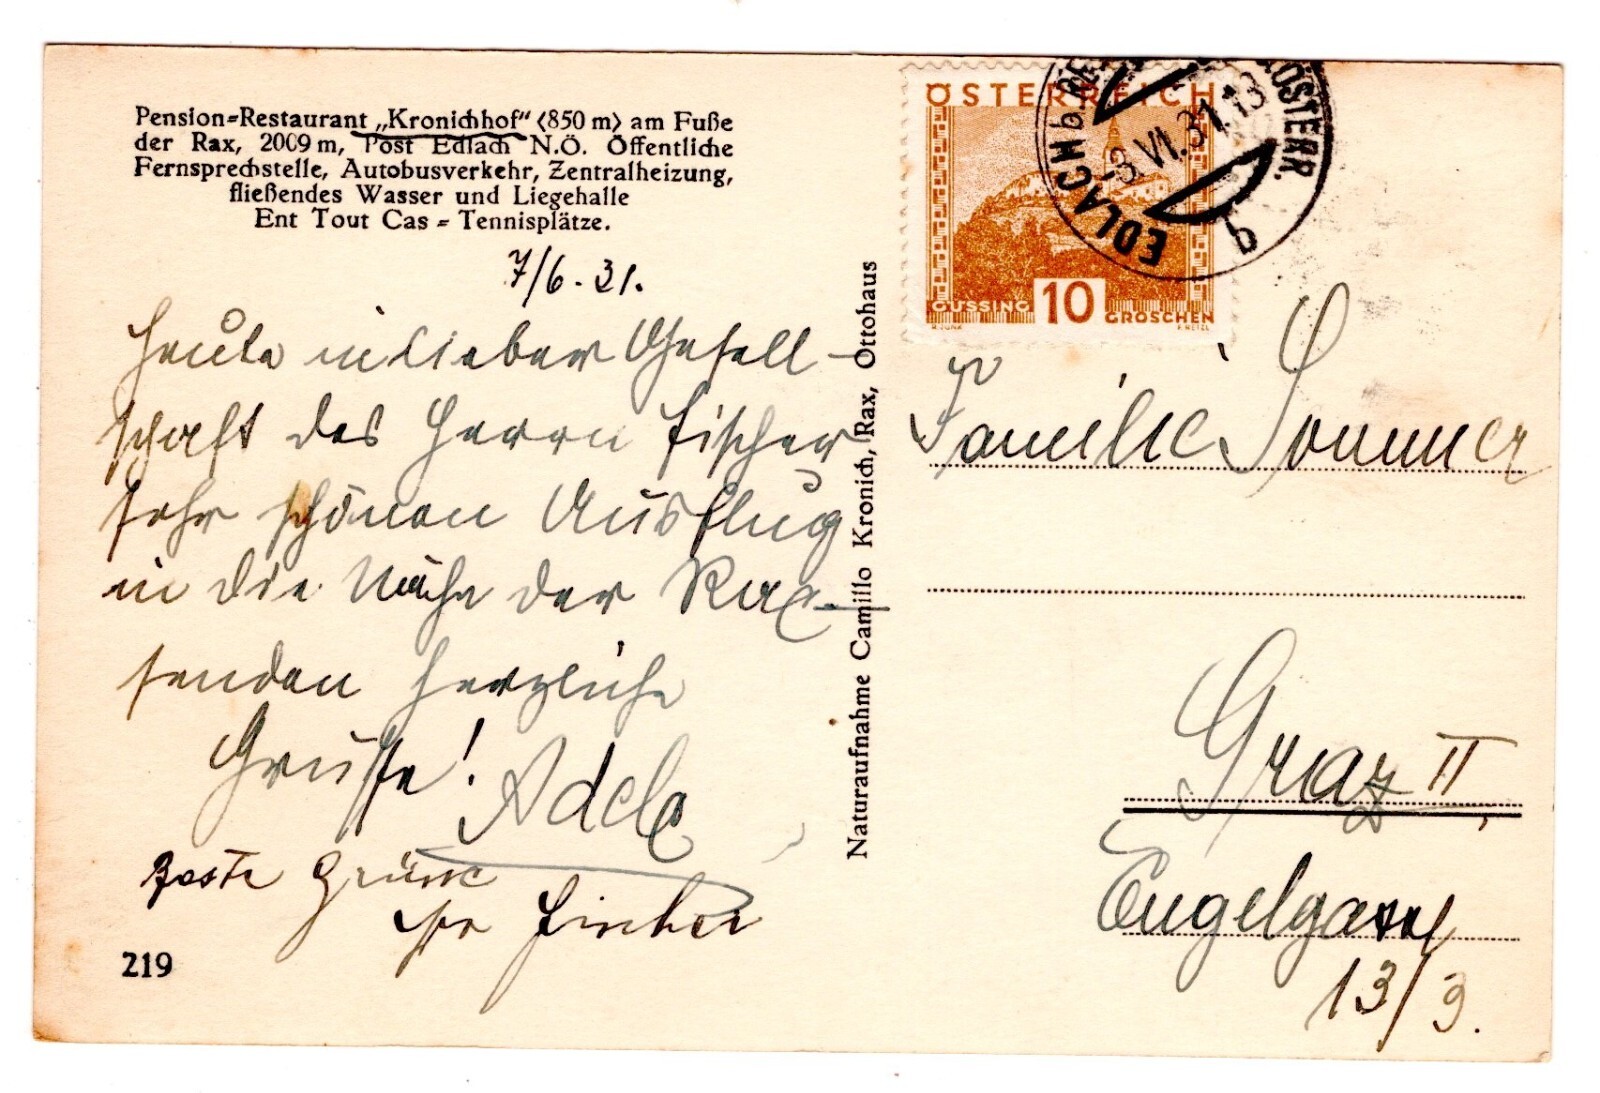 Pension-Restaurant „Kronichhof“ (850 m) am Fuße
der Rax, 2009 m, Post Edlach N.Ö. Öffentliche
Fernsprechstelle, Autobusverkehr, Zentralheizung,
fließendes Wasser und Liegehalle
Ent Tout Cas - Tennisplätze.
7/6. 31.
Heute in lieber Gesell-
schaft des Herrn Fischer
sehr schönen Ausflug
in die Nähe der Rax
senden herzliche
Grüsse! Adele
Beste Grüsse
219
Naturaufnahme Camillo Kronich, Rax, Ottohaus
ÖSTERREICH
GÜSSING 10 GROSCHEN
EDLACH b. ÖSTERR.
-8.VI.31.13
b
Familie Sommer
Graz II
Engelgasse
13/3.